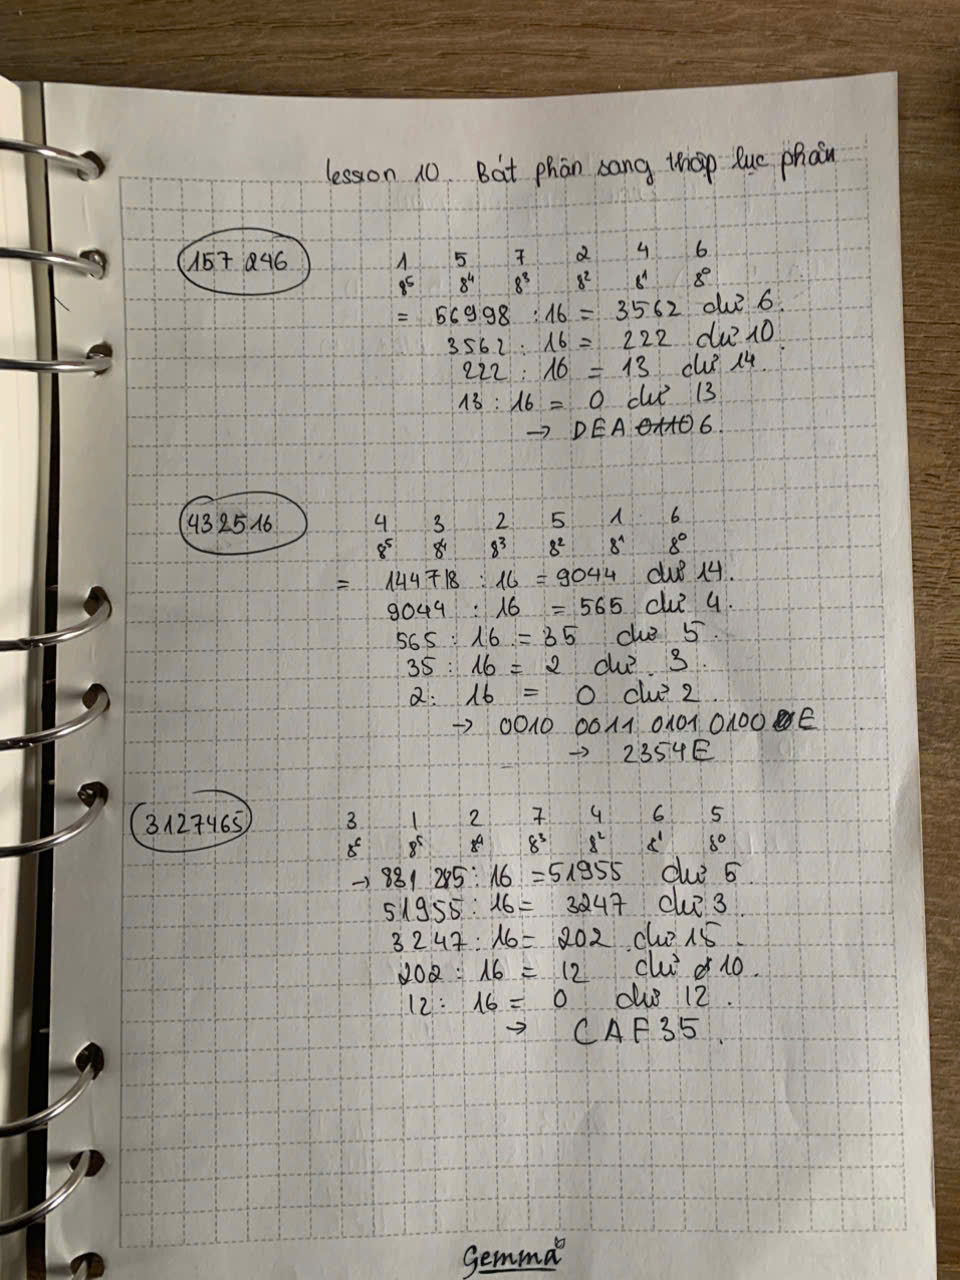 Lesson 10. Bát phân sang thập lục phân
157 246 1 5 7 2 4 6
8⁵ 8⁴ 8³ 8² 8¹ 8⁰
= 56998 : 16 = 3562 dư 6.
3562 : 16 = 222 dư 10.
222 : 16 = 13 dư 14.
13 : 16 = 0 dư 13
→ DEA 6.
432516 4 3 2 5 1 6
8⁵ 8⁴ 8³ 8² 8¹ 8⁰
= 144718 : 16 = 9044 dư 14.
9044 : 16 = 565 dư 4.
565 : 16 = 35 dư 5.
35 : 16 = 2 dư 3.
2 : 16 = 0 dư 2.
→ 0010 0011 0101 0100 E
→ 2354E
3127465 3 1 2 7 4 6 5
8⁶ 8⁵ 8⁴ 8³ 8² 8¹ 8⁰
→ 831 285 : 16 = 51955 dư 5.
51955 : 16 = 3247 dư 3.
3247 : 16 = 202 dư 15.
202 : 16 = 12 dư 10.
12 : 16 = 0 dư 12.
→ CAF35.
Gemma